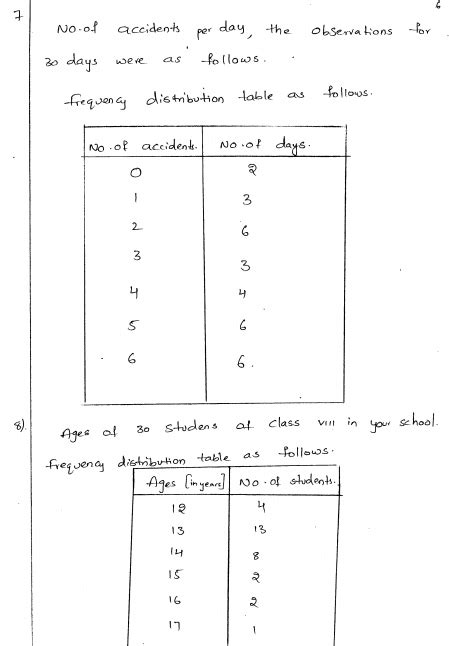 6
7
No. of accidents per day, the observations for
30 days were as follows.
frequency distribution table as follows.
No. of accidents. No. of days.
0 2
1 3
2 6
3 3
4 4
5 6
6 6.
8).
Ages of 30 studens of class VIII in your school.
frequency distribution table as follows.
Ages [in years] No. of students.
12 4
13 13
14 8
15 2
16 2
17 1